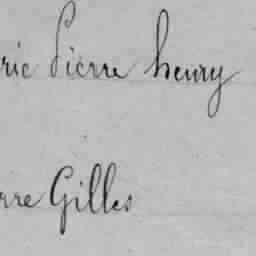 ric Pierre henry
rre Gilles